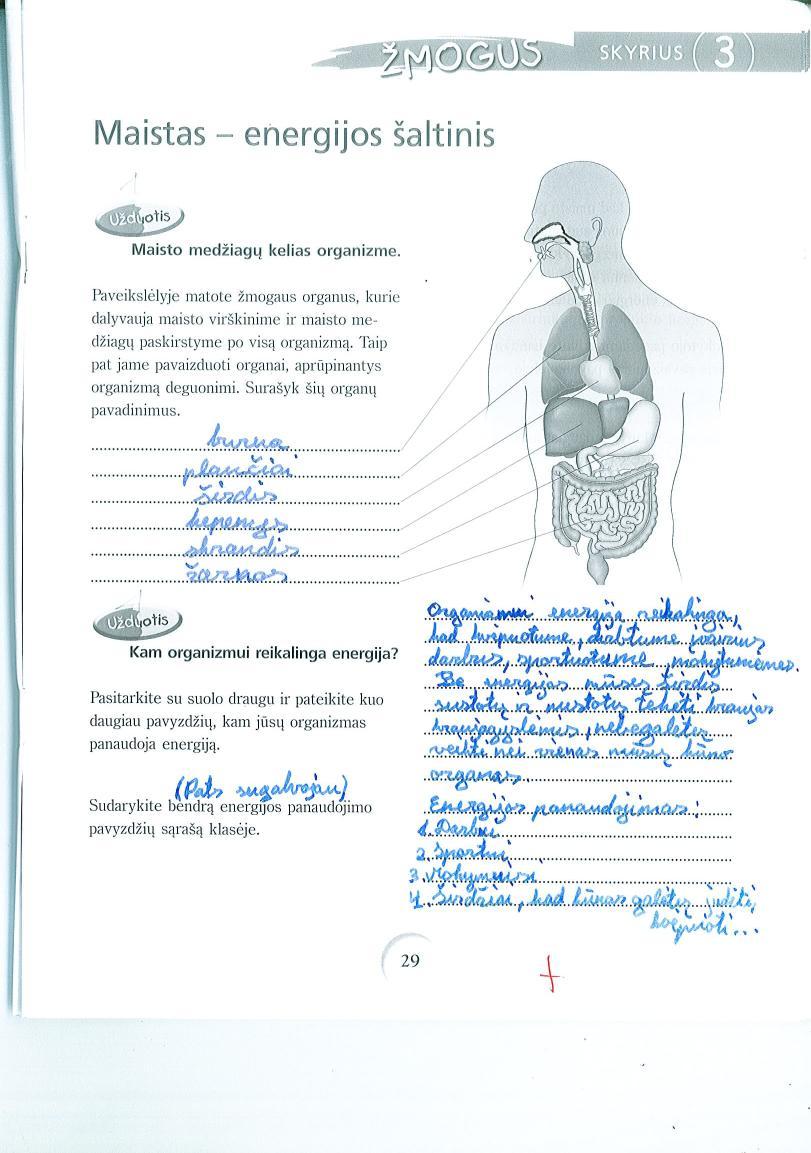 ŽMOGUS SKYRIUS 3
Maistas – energijos šaltinis
1
Užduotis
Maisto medžiagų kelias organizme.
Paveikslėlyje matote žmogaus organus, kurie
dalyvauja maisto virškinime ir maisto me-
džiagų paskirstyme po visą organizmą. Taip
pat jame pavaizduoti organai, aprūpinantys
organizmą deguonimi. Surašyk šių organų
pavadinimus.
burna
plaučiai
širdis
kepenys
skrandis
žarnos
1
Užduotis
Kam organizmui reikalinga energija?
Pasitarkite su suolo draugu ir pateikite kuo
daugiau pavyzdžių, kam jūsų organizmas
panaudoja energiją.
(Pats sugalvojau)
Sudarykite bendrą energijos panaudojimo
pavyzdžių sąrašą klasėje.
Organizmui energija reikalinga,
kad kvėpuotume, dirbtume įvairius
darbus, sportuotume, mokytumėmės.
Be energijos mūsų širdis
sustotų ir nustotų tekėti kraujas
kraujagyslėmis, nebegalėtų
veikti nei vienas mūsų kūno
organas.
Energijos panaudojimas:
1. Darbui
2. Sportui
3. Mokymuisi
4. Širdžiai, kad kūnas galėtų judėti,
kvėpuoti...
29